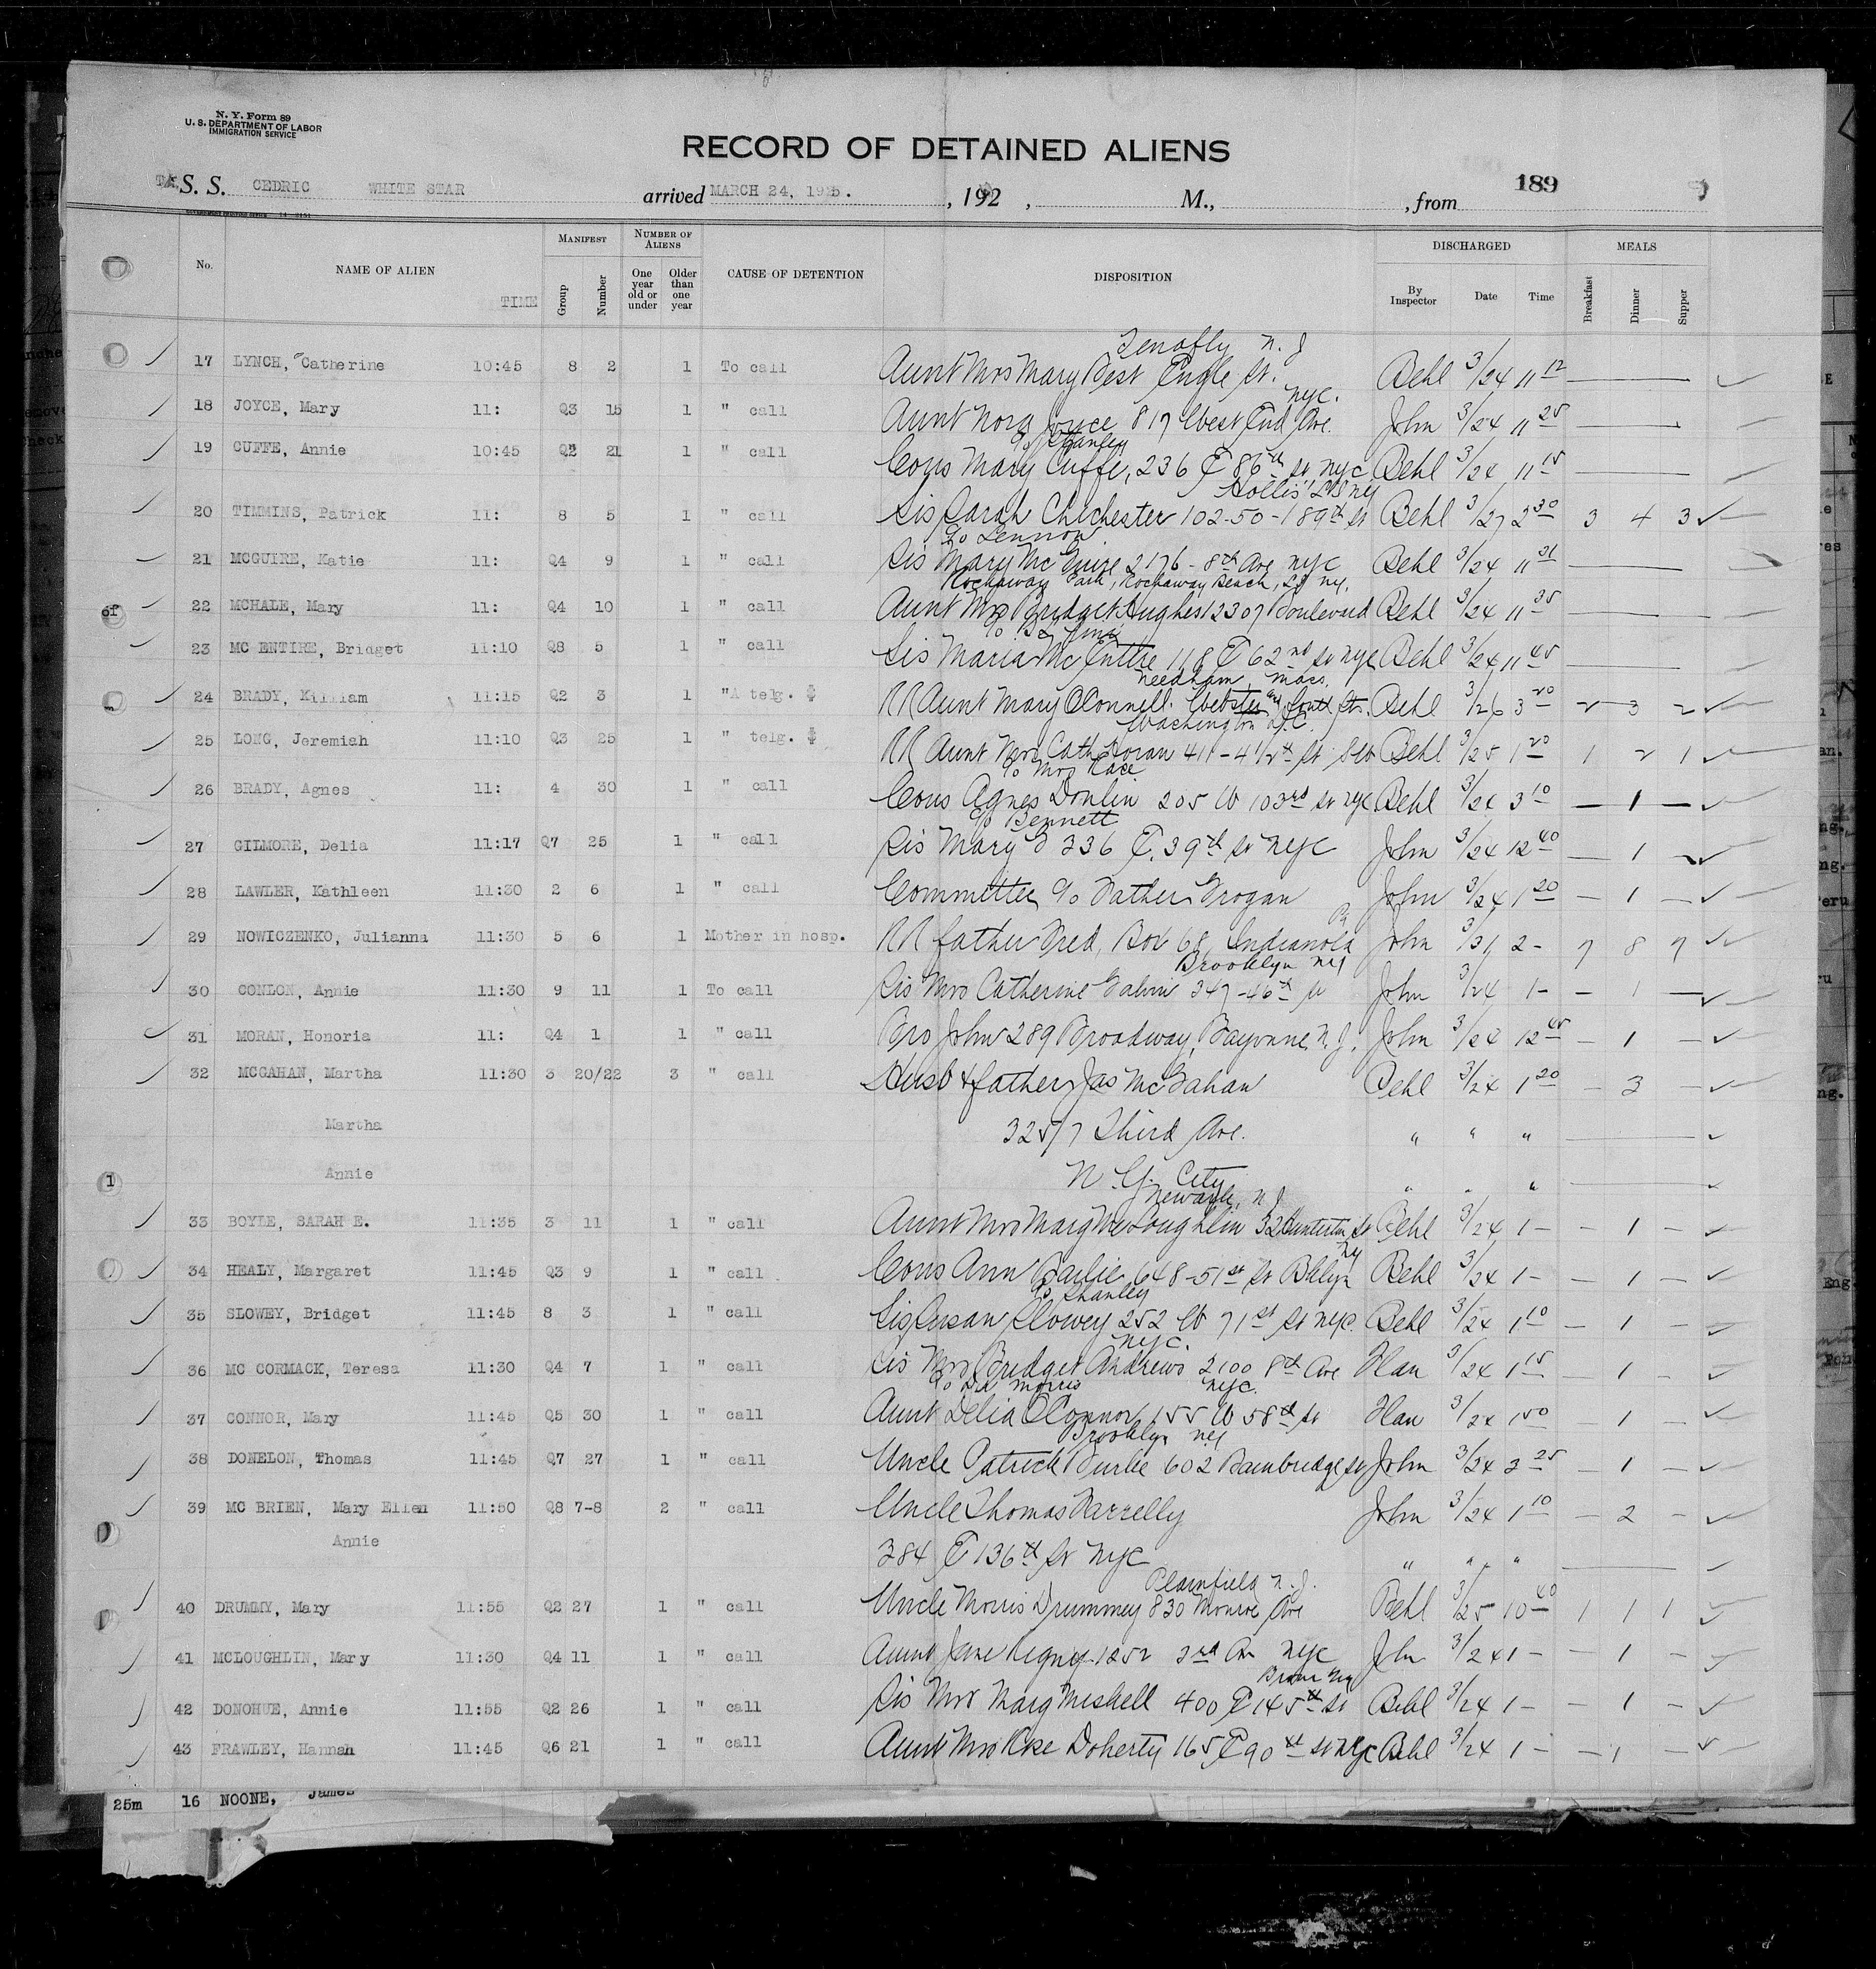 N. Y. Form 89
U. S. DEPARTMENT OF LABOR
IMMIGRATION SERVICE
RECORD OF DETAINED ALIENS
S. S. CEDRIC WHITE STAR arrived MARCH 24, 1925. , 192 , M., , from 189
No. NAME OF ALIEN TIME MANIFEST Group Number NUMBER OF ALIENS One year old or under Older than one year CAUSE OF DETENTION DISPOSITION DISCHARGED By Inspector Date Time MEALS Breakfast Dinner Supper
Tenafly N. J
17 LYNCH, Catherine 10:45 8 2 1 To call Aunt Mrs Mary Best Engle St. Behl 3/24 11 12
NYC.
18 JOYCE, Mary 11: Q3 15 1 " call Aunt Nora Joyce 817 West End Ave. John 3/24 11 25
c/o Stanley
19 CUFFE, Annie 10:45 Q2 21 1 " call Cous Mary Cuffe, 236 E 86th St NYC Behl 3/24 11 15
Hollis LI NY
20 TIMMINS, Patrick 11: 8 5 1 " call Sis Sarah Chichester 102-50-189th St Behl 3/27 2 30 3 4 3
c/o Lennon
21 MCGUIRE, Katie 11: Q4 9 1 " call Sis Mary McGuire 2176-8th Ave NYC Behl 3/24 11 31
Rockaway Park, Rockaway Beach, LI NY.
22 MCHALE, Mary 11: Q4 10 1 " call Aunt Mrs Bridget Hughes 12307 Boulevard Behl 3/24 11 35
23 MC ENTIRE, Bridget 11:10 Q8 5 1 " call Sis Maria McEntire 118 E 62nd St NYC Behl 3/24 11 45
Needham, Mass.
24 BRADY, Killiam 11:15 Q2 3 1 "A telg. RR Aunt Mary OConnell. Webster and South Sts. Behl 3/26 3 20 2 3 2
Washington D.C.
25 LONG, Jeremiah 11:10 Q3 25 1 " telg. RR Aunt Mrs Cath Horan 411-4 1/2th St SW Behl 3/25 1 20 1 2 1
c/o Mrs Race
26 BRADY, Agnes 11: 4 30 1 " call Cous Agnes Donlin 205 W 103rd St NYC Behl 3/24 3 10 — 1 —
c/o Bennett
27 GILMORE, Delia 11:17 Q7 25 1 " call Sis Mary G 336 E. 39th St NYC John 3/24 12 40 — 1 —
28 LAWLER, Kathleen 11:30 2 6 1 " call Committee c/o Father Grogan John 3/24 1 20 — 1 —
Pa
29 NOWICZENKO, Julianna 11:30 5 6 1 Mother in hosp. RR father Fred, Box 68, Indianola John 3/31 2- 7 8 7
Brooklyn NY
30 CONLON, Annie 11:30 9 11 1 To call Sis Mrs Catherine Galvin 347-46th St John 3/24 1- — 1 —
31 MORAN, Honoria 11: Q4 1 1 " call Bro John 289 Broadway, Bayonne, N.J. John 3/24 12 45 — 1 —
32 MCGAHAN, Martha 11:30 3 20/22 3 " call Husb & father Jas McGahan Behl 3/24 1 20 — 3 —
Martha 3257 Third Ave. " " "
Annie N. Y. City " " "
Newark, N J
33 BOYLE, SARAH E. 11:35 3 11 1 " call Aunt Mrs Marg McLoughlin 32 Hunterdon St Behl 3/24 1- — 1 —
NY
34 HEALY, Margaret 11:45 Q3 9 1 " call Cous Ann Bailie 648-51st St Bklyn Behl 3/24 1- — 1 —
c/o Shanley
35 SLOWEY, Bridget 11:45 8 3 1 " call Sis Susan Slowey 252 W 71st St NYC. Behl 3/24 1 10 — 1 —
NYC.
36 MC CORMACK, Teresa 11:30 Q4 7 1 " call Sis Mrs Bridget Andrews 2100 8th Ave Han 3/24 1 15 — 1 —
c/o Dr Morris NYC.
37 CONNOR, Mary 11:45 Q5 30 1 " call Aunt Delia OConnor 155 W 58th St Han 3/24 1 50 — 1 —
Brooklyn NY
38 DONELON, Thomas 11:45 Q7 27 1 " call Uncle Patrick Burke 602 Bainbridge St John 3/24 3 25 — 1 —
39 MC BRIEN, Mary Ellen 11:50 Q8 7-8 2 " call Uncle Thomas Farrelly John 3/24 1 10 — 2 —
Annie 384 E 136th St NYC " " "
Plainfield N. J.
40 DRUMMY, Mary 11:55 Q2 27 1 " call Uncle Morris Drummey 830 Monroe Ave Behl 3/25 10 40 1 1 1
41 MCLOUGHLIN, Mary 11:30 Q4 11 1 " call Aunt Jane Regney 1252 3rd Av NYC John 3/24 1- — 1 —
Bronx NY
42 DONOHUE, Annie 11:55 Q2 26 1 " call Sis Mrs Marg Meshell 400 E 145th St Behl 3/24 1- — 1 —
43 FRAWLEY, Hannah 11:45 Q6 21 1 " call Aunt Mrs Rose Doherty 165 E 90th St NYC Behl 3/24 1- — 1 —
25m 16 NOONE, James